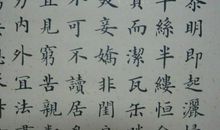 明即起灑
半絲半縷恒
而潔瓦缶
妾嬌非閨房
可不讀居
宜見窮苦親
內外宜法